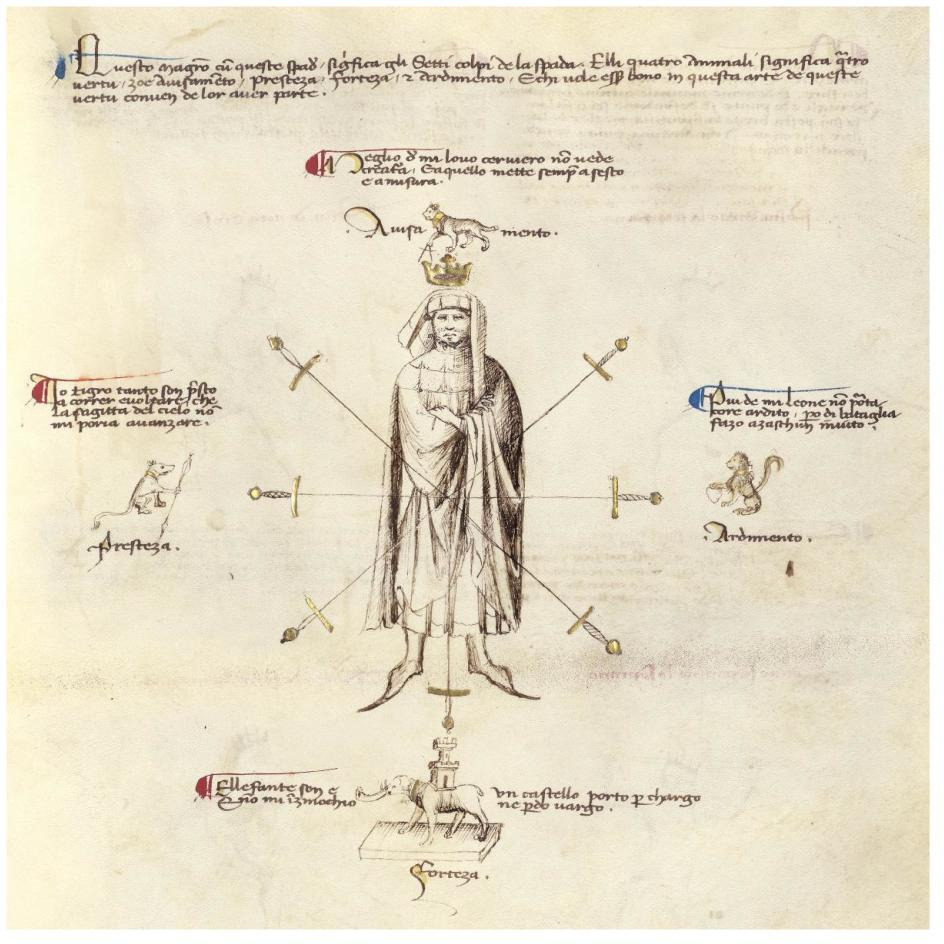 Questo Magrõ cũ queste spad̃, sigĩfica gli Setti colpi de la spada. Elli quatro Animali significa q̃tro
vertu, zoe Avisamẽto, Presteza, Forteza, ⁊ Ardimento, E chi vole ess̃ bono in questa arte de queste
vertu conven de lor aver parte.
Meglio d̃ mi lovo cerviero nõ vede
creatã, E aquello mette semp̃ a sesto
e a misura.
Avisa mento.
Io tigro tanto son p̃sto
a correr e voltare, che
la sagitta del cielo nõ
mi poria avanzare.
Piu de mi leone nõ porta
core ardito, po di bataglia
fazo a zaschun invito.
Presteza.
Ardimento.
Ellefante son e un castello porto p chargo
E nõ mi ĩzinochio ne p̃do vargo.
Forteza.